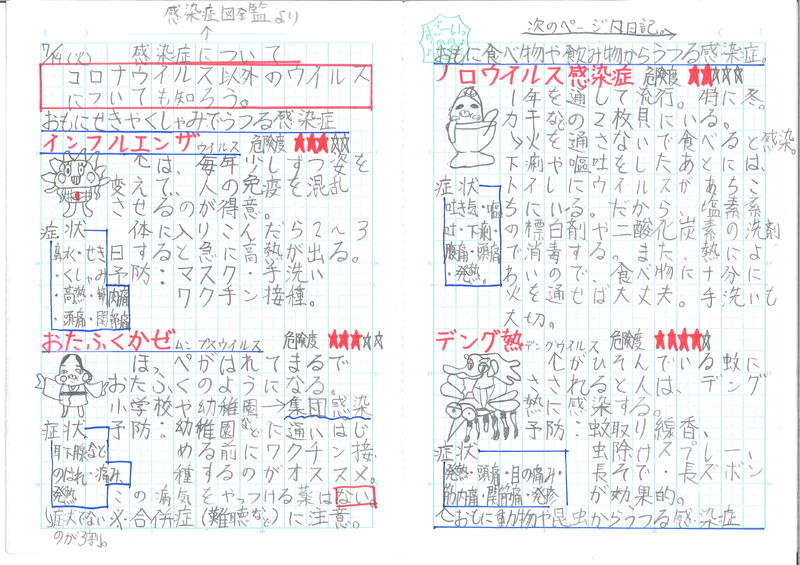 感染症図鑑より
↑
7/14(火) 感染症について
コロナウイルス以外のウイルス
についても知ろう。
おもにせきやくしゃみでうつる感染症
インフルエンザウイルス 危険度 ★★★☆☆
は、毎年少しずつ姿を
変えて、人の免疫を混乱
させるのが得意。
体に入りこんだら2~3
日すると急に高熱が出る。
予防:マスク・手洗い
ワクチン接種。
症状
鼻水・せき
・くしゃみ
・高熱・筋肉痛
・頭痛・関節痛
おたふくかぜ ムンプスウイルス 危険度 ★★★☆☆
ほっぺがはれてまるで
おたふくのようになる。
小学校や幼稚園→集団感染
予防:幼稚園などに通いはじ
める前にワクチン接
種するのがオススメ。
症状
耳下腺など
のはれ・痛み、
発熱
この病気をやっつける薬はない。
※合併症(難聴など)に注意。
症状でない
のが3割。
すごーいっ
次のページ月日記。→
おもに食べ物や飲み物からうつる感染症。
ノロウイルス感染症 危険度 ★★☆☆☆
1年を通して流行。特に冬。
カキなどの2枚貝にいる。
↳火を通さないで食べると感染。
下痢や嘔吐をしたあとには、
トイレにウイルスがあちこ
ちにいる。だから、塩素系
の標白剤や二酸化炭素の洗剤
で消毒する。また、熱によ
あいので、食べ物に十分に
火を通せば大丈夫。手洗いも
大切。
症状
吐き気・嘔
吐・下痢・
腹痛・頭痛
・発熱。
デング熱 デングウイルス 危険度 ★★★★☆
がひそんでいる蚊に
さされると人は、デング
熱に感染する。
予防:蚊取り線香、
虫除けスプレー、
長そで・長ズボン
が効果的。
症状
発熱・頭痛・目の痛み・
筋肉痛・関節痛・発疹
↑おもに動物や昆虫からうつる感染症